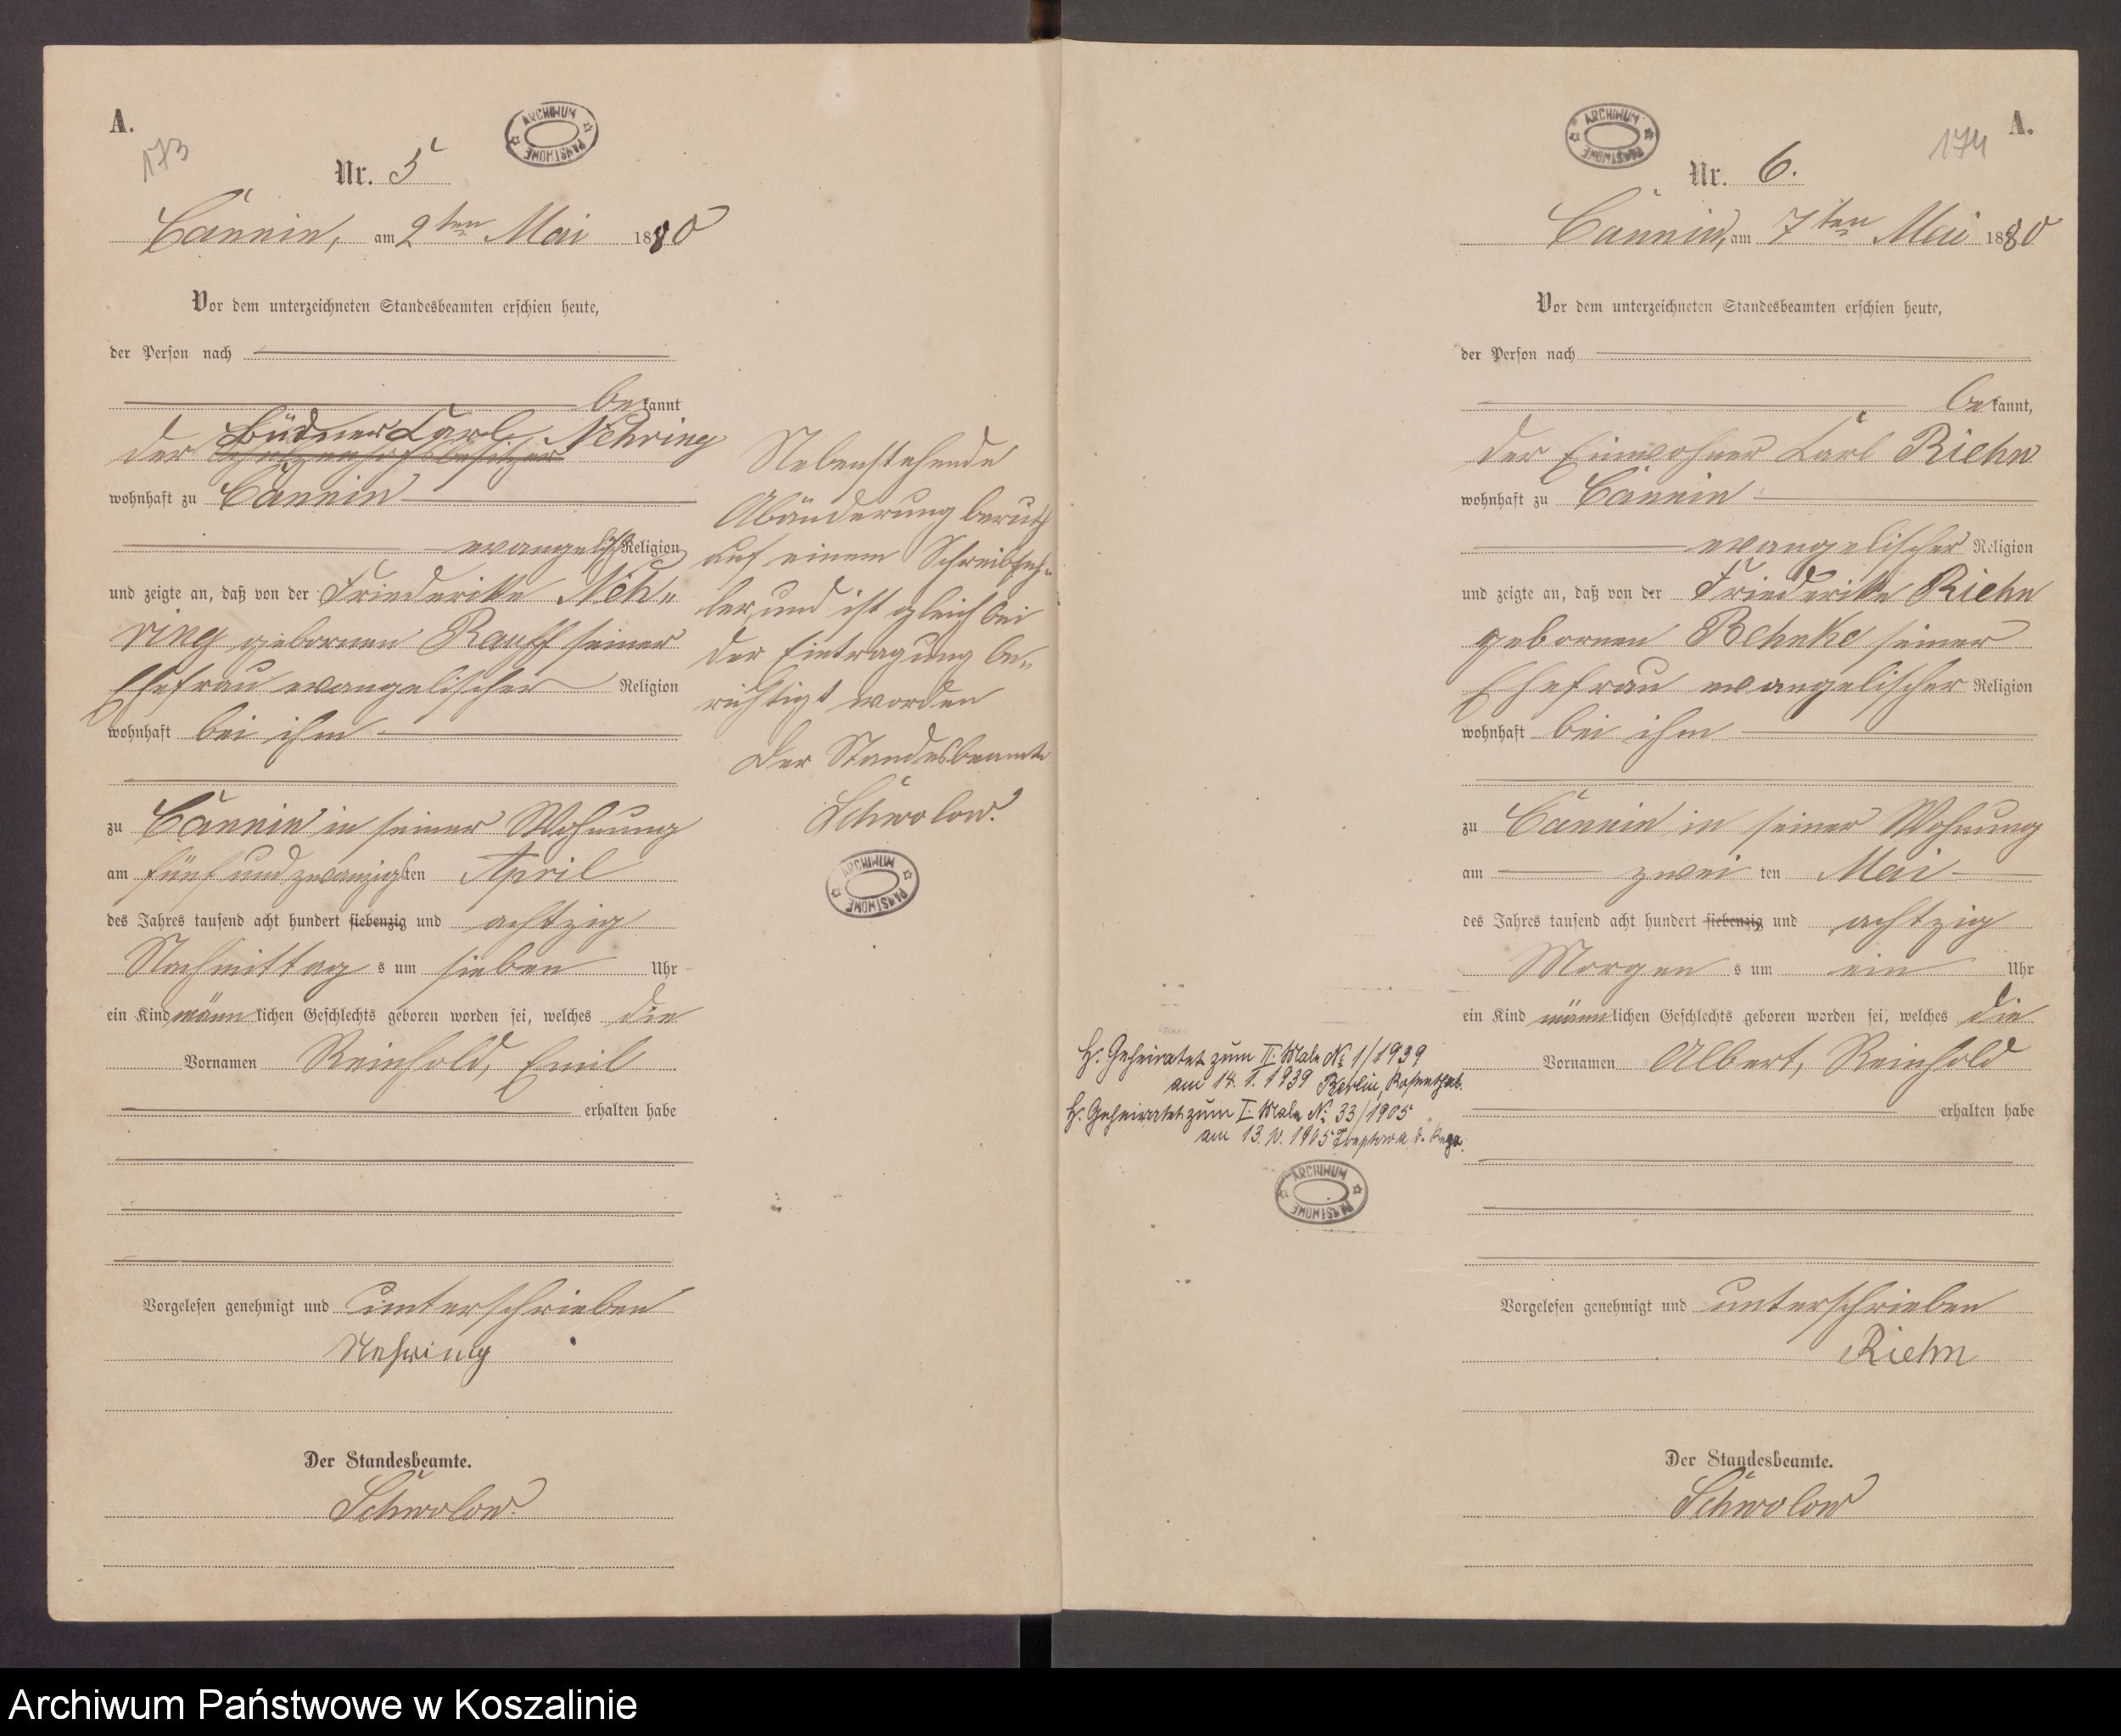 A.
173
ARCHIWUM PAŃSTWOWE
Nr. 5
Cannin, am 2ten Mai 1880
Vor dem unterzeichneten Standesbeamten erschien heute,
der Person nach
bekannt
Büdner Carl Nehring
der
wohnhaft zu Cannin
evangelisch Religion
und zeigte an, daß von der Friederike Neh„
ring gebornen Rauff seiner
Ehefrau evangelischer Religion
wohnhaft bei ihm
zu Cannin in seiner Wohnung
am fünf und zwanzigsten April
des Jahres tausend acht hundert siebenzig und achtzig
Nachmittag s um sieben Uhr
ein Kind männlichen Geschlechts geboren worden sei, welches die
Vornamen Reinhold, Emil
erhalten habe
Vorgelesen genehmigt und unterschrieben
Nehring
Der Standesbeamte.
Schwolow.
Nebenstehende
Abänderung beruth
auf einem Schreibfeh„
ler, und ist gleich bei
der Eintragung be„
richtigt worden
Der Standesbeamte
Schwolow.
ARCHIWUM PAŃSTWOWE
A.
174
ARCHIWUM PAŃSTWOWE
Nr. 6.
Cannin, am 7ten Mai 1880
Vor dem unterzeichneten Standesbeamten erschien heute,
der Person nach
bekannt,
der Einwohner Carl Riehn
wohnhaft zu Cannin
evangelischer Religion
und zeigte an, daß von der Friederike Riehn
gebornen Behnke seiner
Ehefrau evangelischer Religion
wohnhaft bei ihm
zu Cannin in seiner Wohnung
am zwei ten Mai
des Jahres tausend acht hundert siebenzig und achtzig
Morgen s um ein Uhr
ein Kind männlichen Geschlechts geboren worden sei, welches die
Vornamen Albert, Reinhold
erhalten habe
H. Geheiratet zum II. Male No 1/1939
am 14. 1. 1939 Berlin, Rosenthal.
H. Geheiratet zum I. Male No 33/1905
am 13. IV. 1905 Treptow a. d. Rega.
ARCHIWUM PAŃSTWOWE
Vorgelesen genehmigt und unterschrieben
Riehn
Der Standesbeamte.
Schwolow
Archiwum Państwowe w Koszalinie